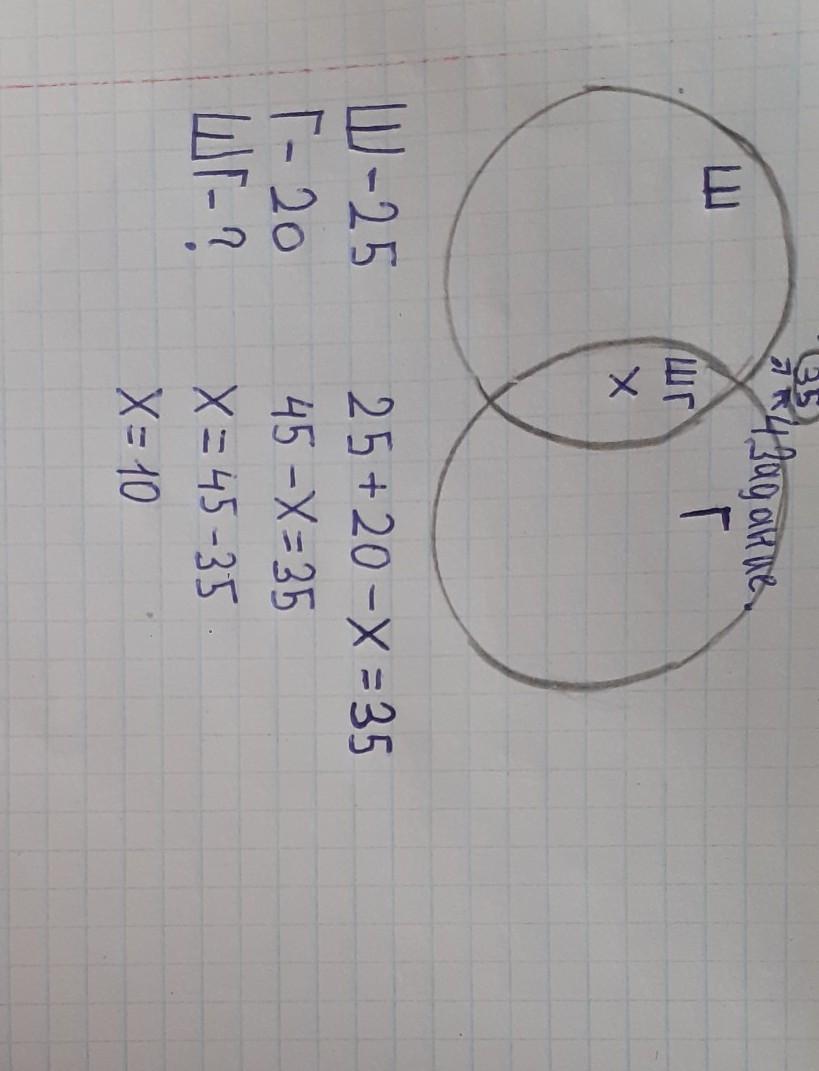 35
4 Задание.
Ш
ШГ
Г
X
Ш - 25
25 + 20 - X = 35
Г - 20
45 - X = 35
ШГ - ?
X = 45 - 35
X = 10